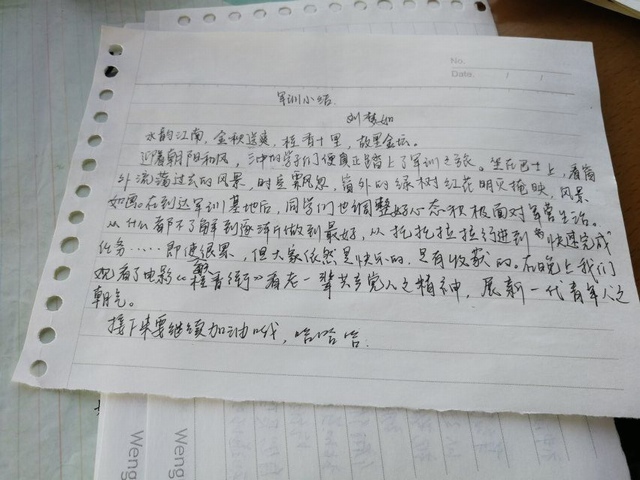 No.
Date. / /
军训小结
刘梦如
水韵江南,金秋送爽,桂香十里,故里金坛。
迎着朝阳和风,三中的学子们便真正踏上了军训之旅。坐在巴士上,看窗
外流荡过去的风景,时呈飘忽,窗外的绿树红花明灭掩映,风景
如画。在到达军训基地后,同学们也调整好心态积极面对军营生活。
从什么都不了解到逐渐做到最好,从拖拖拉拉行进到“快速完成
任务……即使很累,但大家依然是快乐的,是有收获的。在晚上我们
观看了电影《馨香街》看老一辈共产党人之精神,展新一代青年人之
朝气。
接下来要继续加油哦,哈哈哈.
Weng
Weng